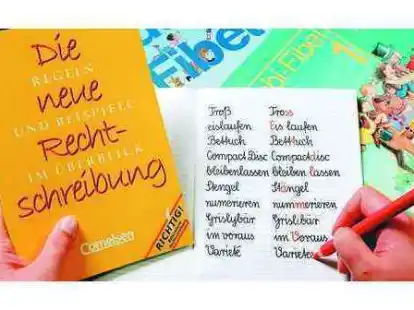 Die
REGELN
neue
UND BEISPIELE
Recht-
IM ÜBERBLICK
schreibung
Cornelsen
RICHTIG!
Fibel
bi-Fibel
1
Troß Tross
eislaufen Eis laufen
Bettuch Betttuch
Compact Disc Compactdisc
bleibenlassen bleiben lassen
Stengel Stängel
numerieren nummerieren
Grislybär Grislibär
im voraus im Voraus
Varieté Varietee